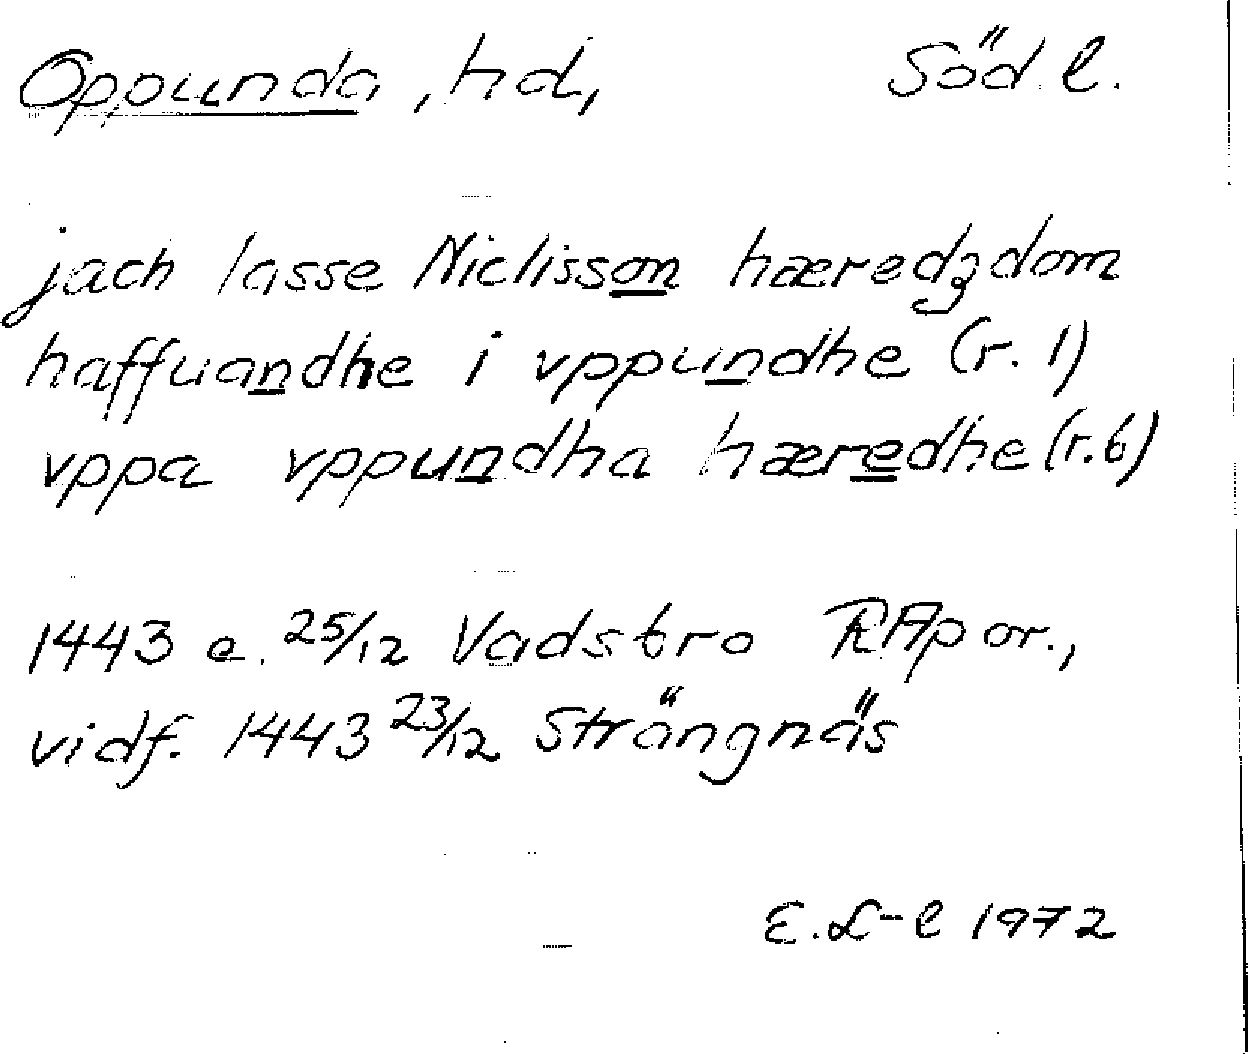 Oppunda, hd, Söd. l.
jach lasse Niclisson hæredzdom
haffuandhe i vppundhe (r. 1)
vppa vppundha hæredhe (r. 6)
1443 e. 25/12 Vadstro RAp or.,
vidf. 1443 23/12 Strängnäs
E. L-l 1972